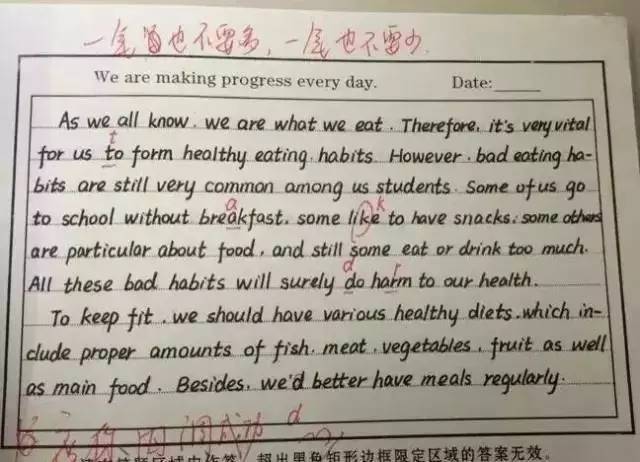 一笔也不要多，一笔也不要少.
We are making progress every day. Date:
As we all know, we are what we eat. Therefore, it's very vital
t
for us to form healthy eating habits. However, bad eating ha-
bits are still very common among us students. Some of us go
a k
to school without breakfast, some like to have snacks; some others
are particular about food, and still some eat or drink too much.
d r
All these bad habits will surely do harm to our health.
To keep fit, we should have various healthy diets, which in-
clude proper amounts of fish, meat, vegetables, fruit as well
as main food. Besides, we'd better have meals regularly.
成功 d
超出黑色矩形边框限定区域的答案无效。